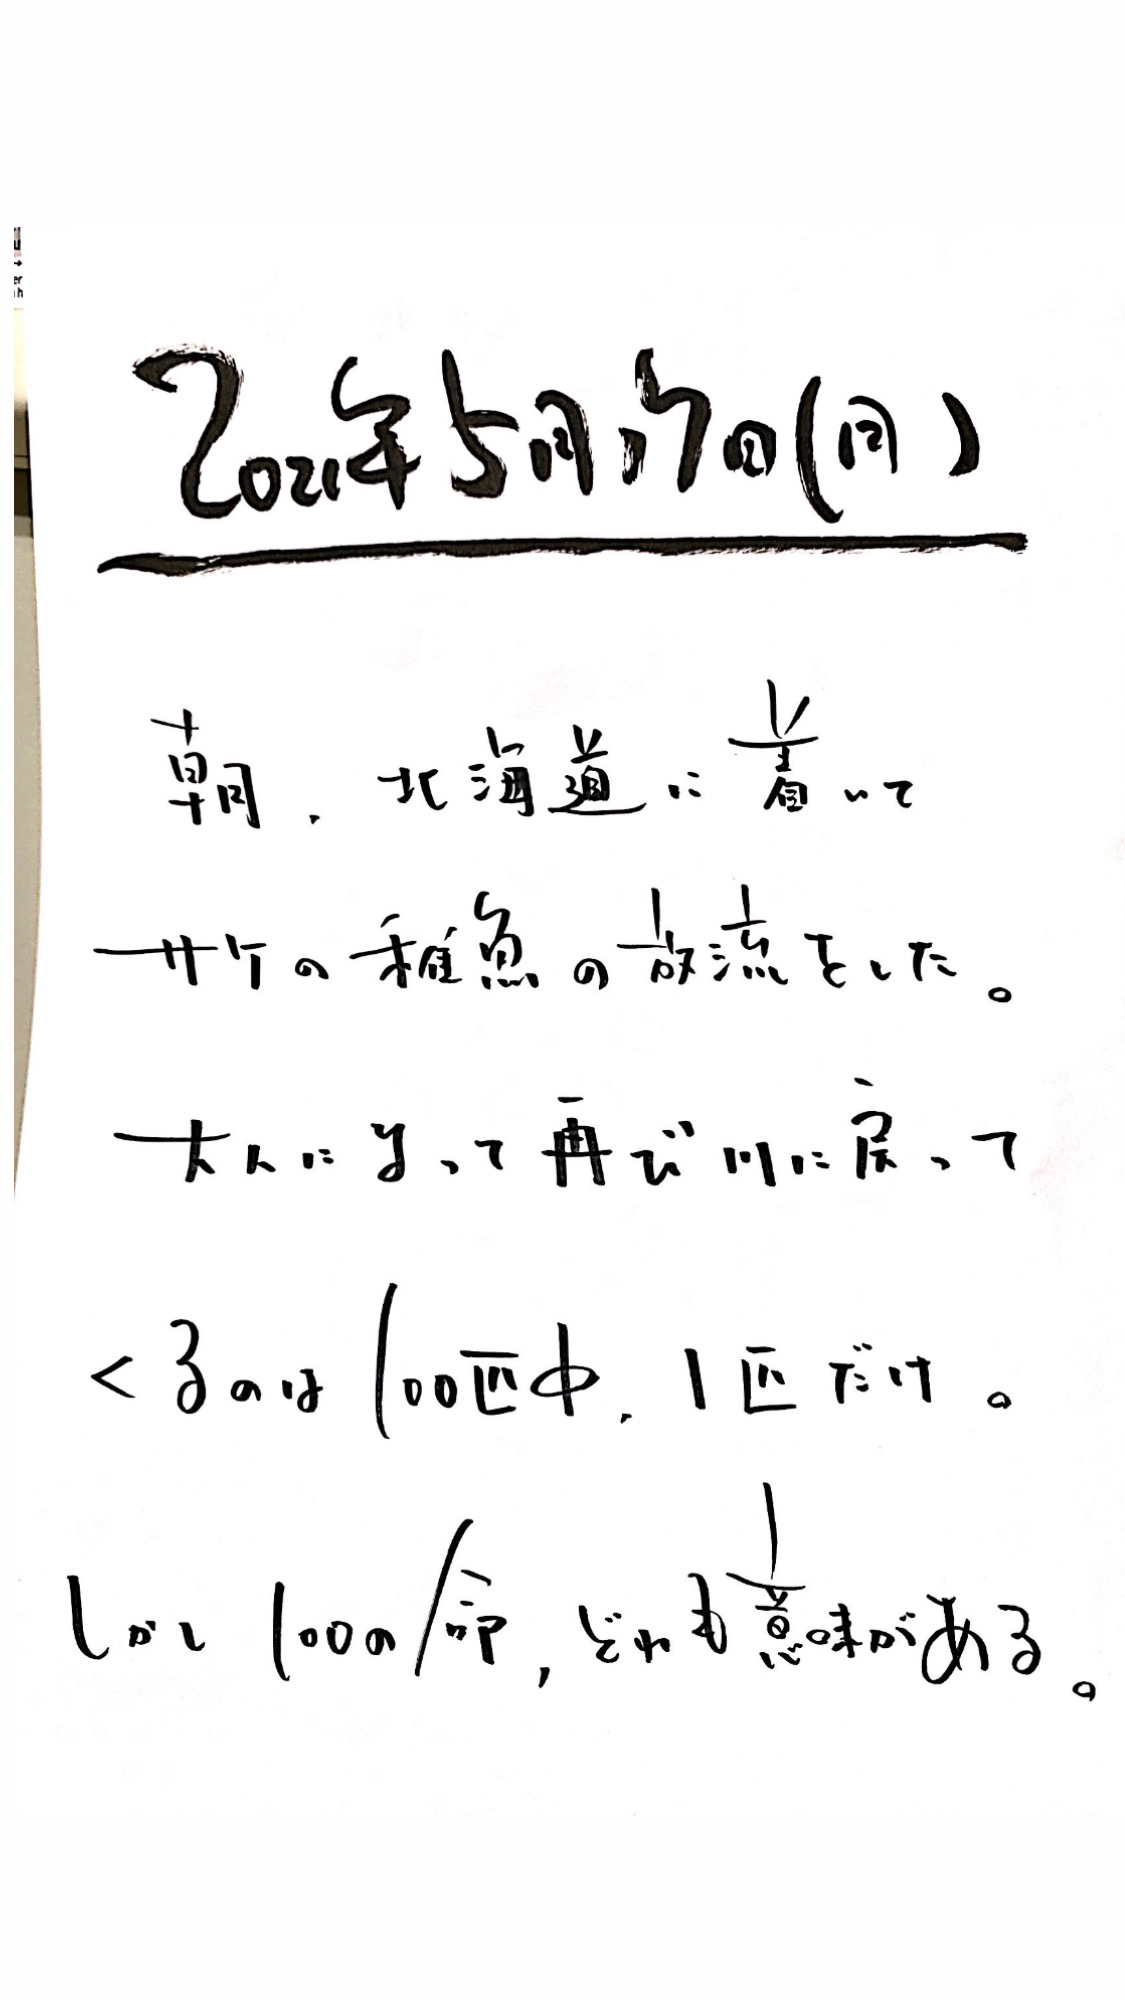 2021年5月17日(月)
朝、北海道に着いて
サケの稚魚の放流をした。
大人になって再び川に戻って
くるのは100匹中、1匹だけ。
しかし100の命、どれも意味がある。